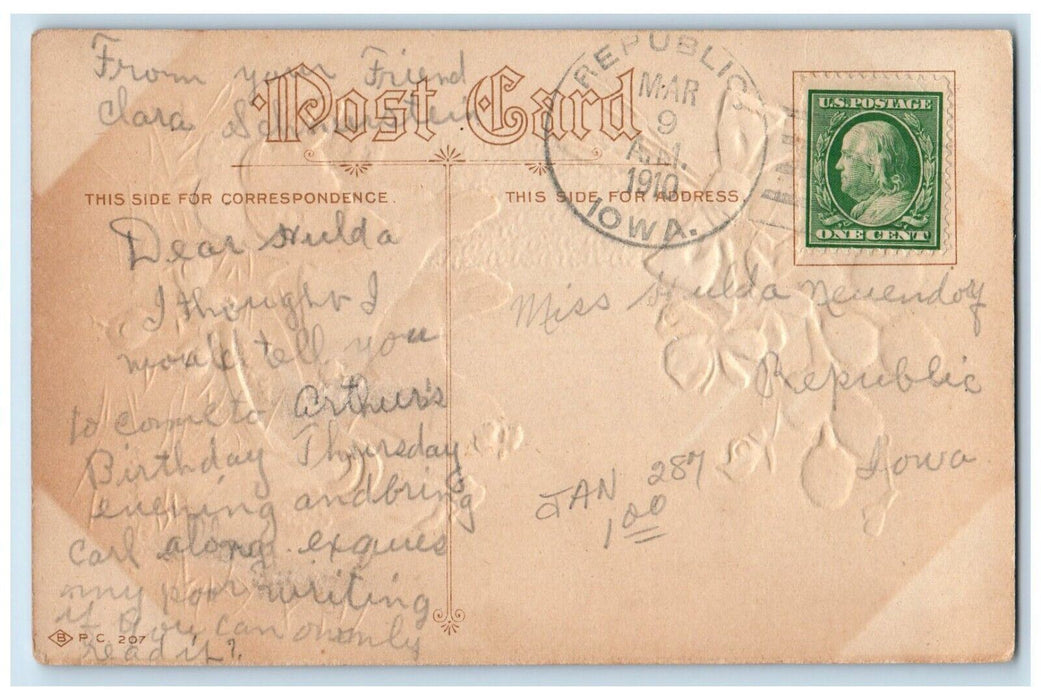 From your Friend
Clara
Post Card
REPUBLIC
MAR
9
A.M.
1910
IOWA.
U.S. POSTAGE
ONE CENT
THIS SIDE FOR CORRESPONDENCE.
THIS SIDE FOR ADDRESS
Dear Hulda
I thought I
would tell you
to come to Arthur's
Birthday Thursday
evening and bring
Carl along. exques
my poor writing
if you can only
read it?
Miss Hulda Neuendorf
Republic
Iowa
JAN 287
1.00
B P. C. 207